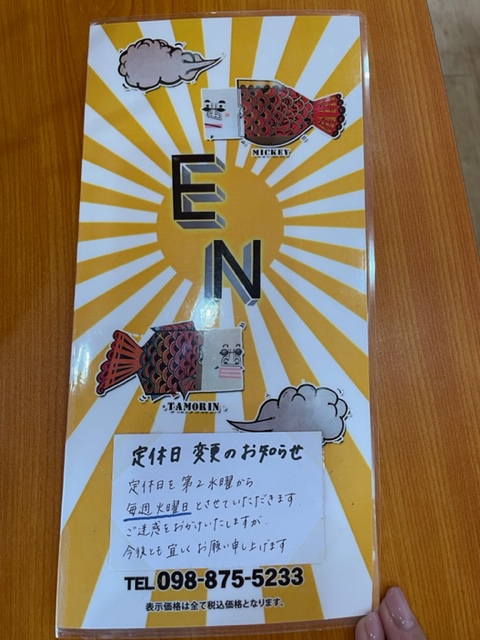 MICKEY
E
N
TAMORIN
定休日 変更のお知らせ
定休日を第2水曜から
毎週火曜日とさせていただきます
ご迷惑をおかけいたしますが、
今後とも宜しくお願い申し上げます
TEL098-875-5233
表示価格は全て税込価格となります。